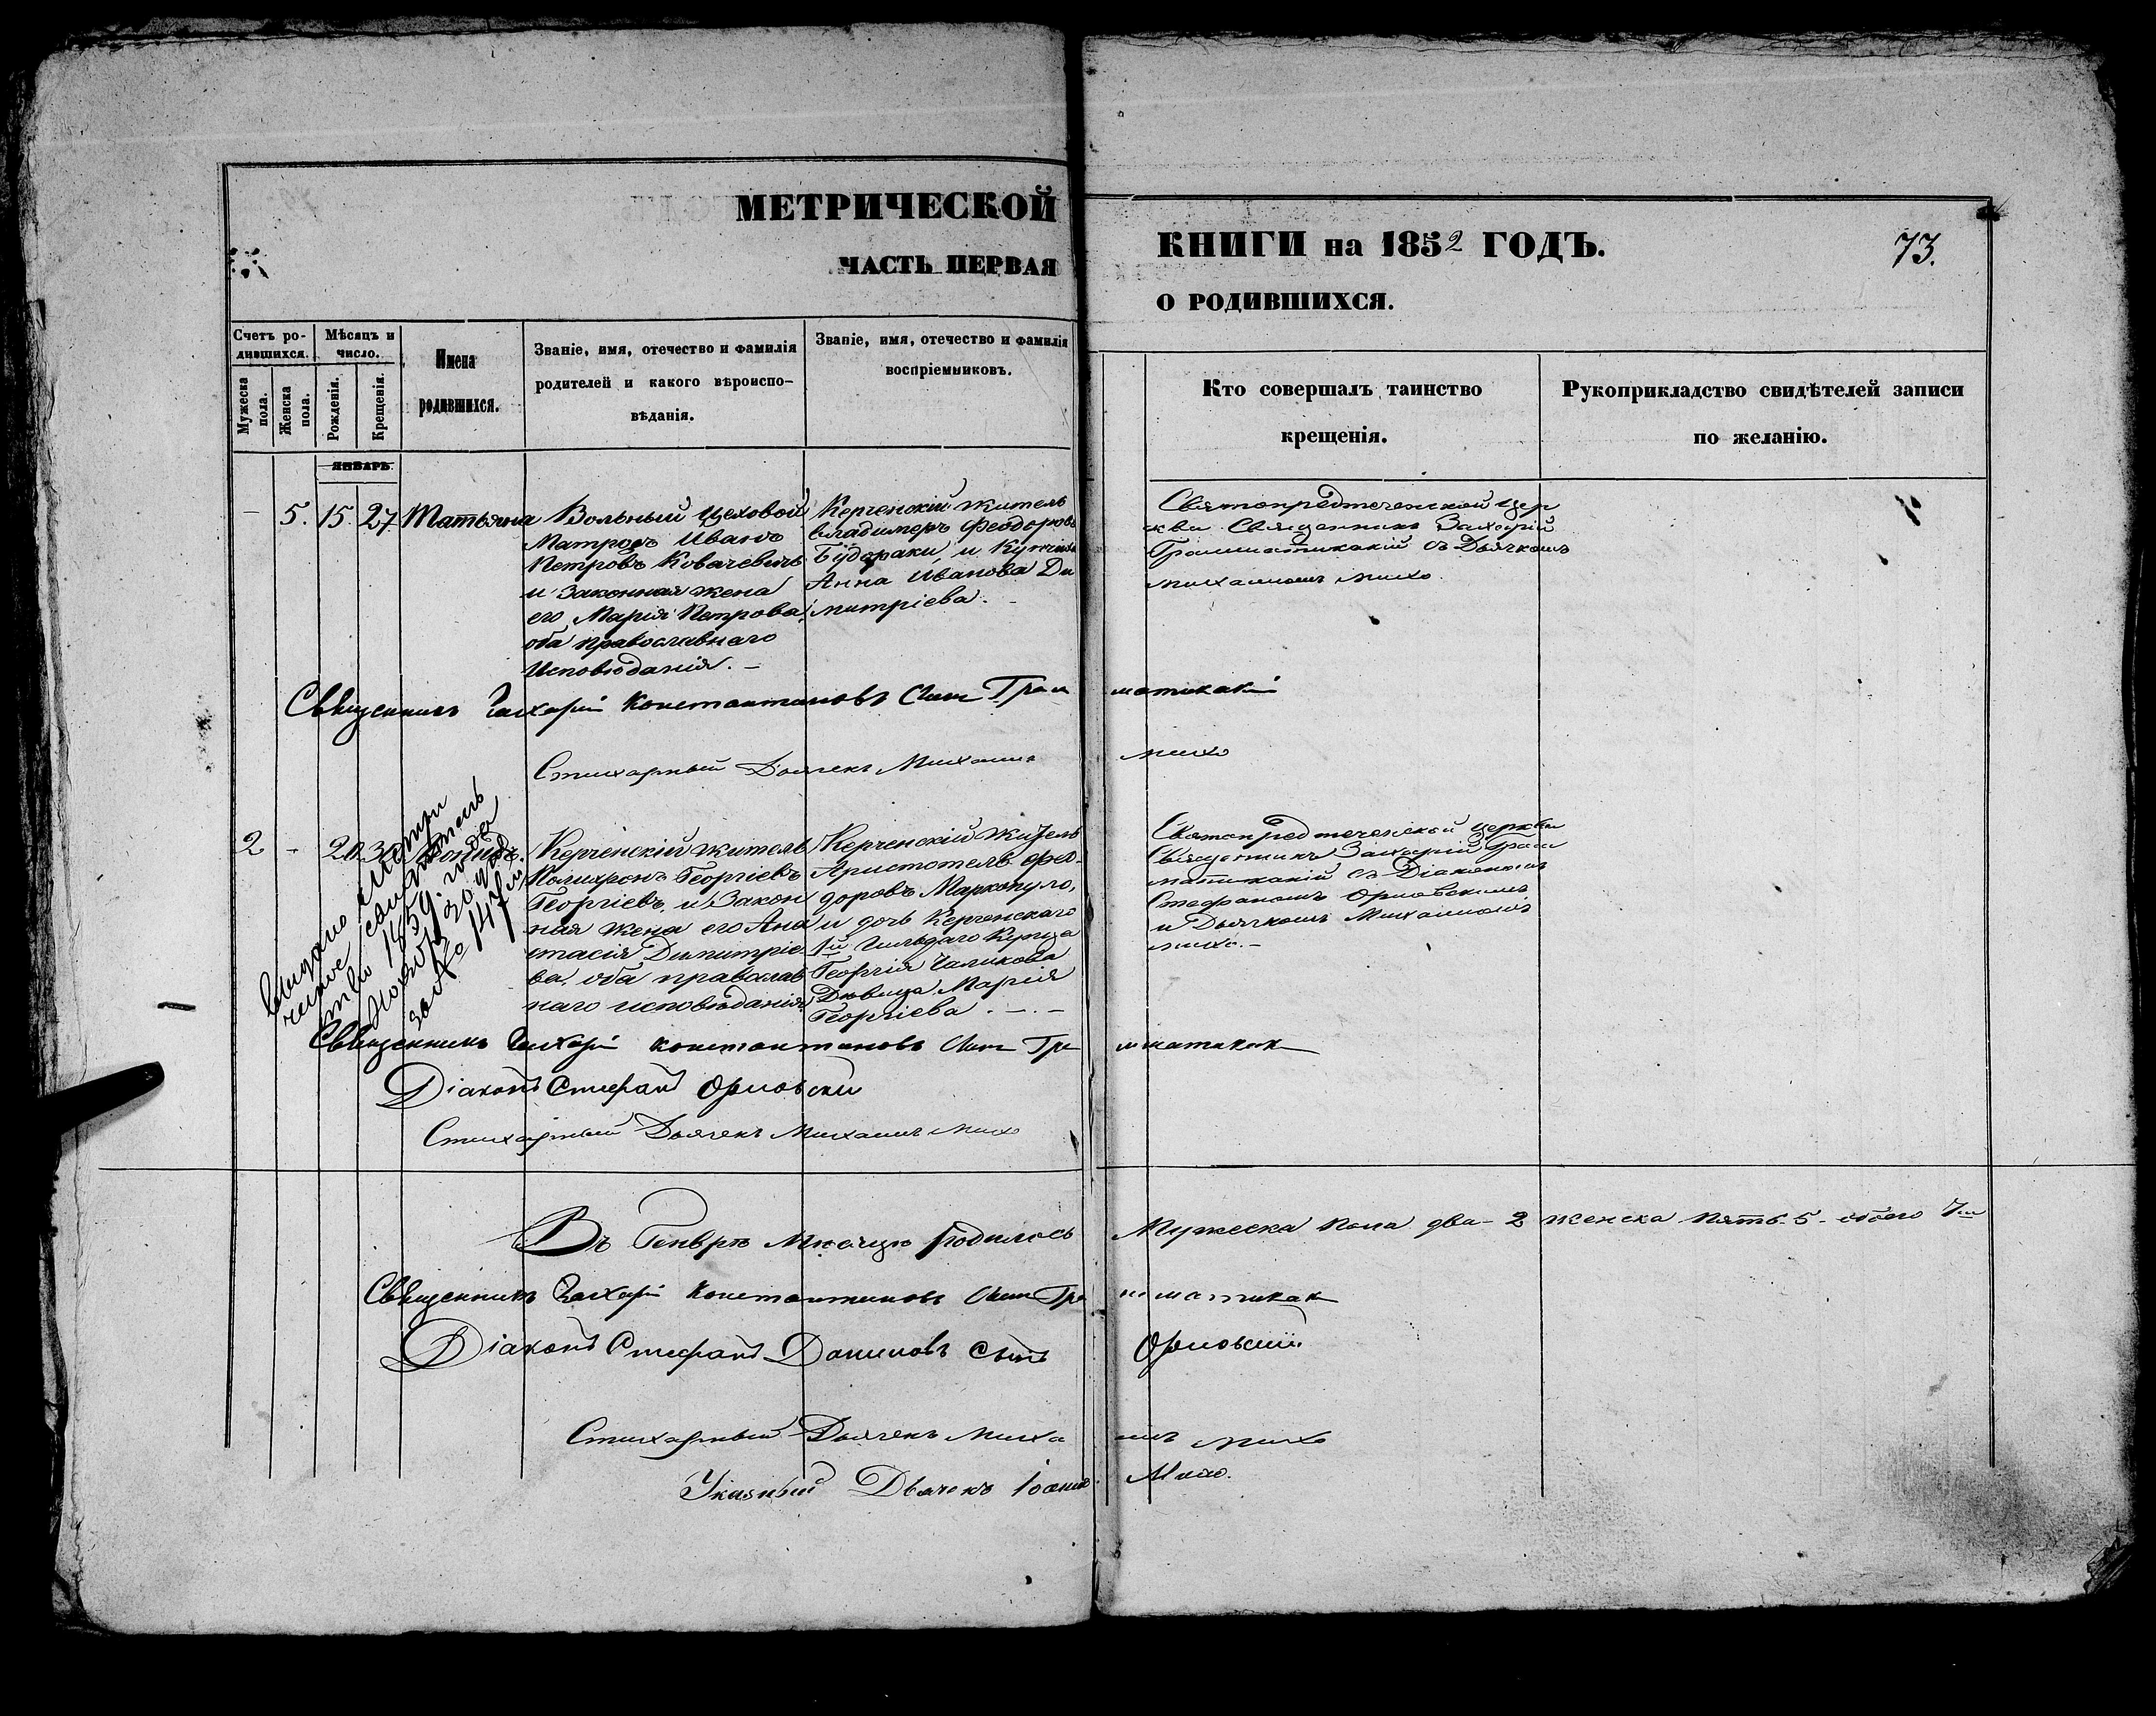 МЕТРИЧЕСКОЙ
ЧАСТЬ ПЕРВАЯ
КНИГИ на 1852 ГОДЪ.
73.
О РОДИВШИХСЯ.
Счетъ ро-
дившихся.
Мужеска пола.
Женска пола.
Мѣсяцъ и
число.
Рожденія.
Крещенія.
Имена
родившихся.
Званіе, имя, отечество и фамилія
родителей и какого вѣроиспо-
вѣданія.
Званіе, имя, отечество и фамилія
воспріемниковъ.
Кто совершалъ таинство
крещенія.
Рукоприкладство свидѣтелей записи
по желанію.
ЯНВАРЬ
- 5. 15. 27 Татьяна
Вольный Цеховой
Матрозъ Иванъ
Петровъ Ковачевичь
и Законная жена
его Марія Петрова,
оба православнаго
Исповѣданія. -
Керченскій житель
Владимеръ Феодоровъ
Будораки, и
Анна Иванова Ди
митріева. -
Святопредтеченской Цер
кви Священникъ Захарій
Грамматикакій съ Дьячкомъ
Михаиломъ Михо
Священникъ Захарій Константиновъ Сынъ Грам матикакій
Стихарный Дьячекъ Михаилъ Михо
2 - 20 30
Керченскій житель
Полихронъ Георгіевъ
Георгіевъ, и Закон
ная жена его Ана
стасія Димитріе
ва, оба православ
наго исповѣданія.
Керченскій житель
Аристотель Фео-
доровъ Маркопуло,
и дочь Керченскаго
1й Гильдіи Купца
Георгія Чаликова
Дѣвица Марія
Георгіева. - . -
Святопредтеченской церкви
Священникъ Захарій Грам
матикакій съ Діакономъ
Стефаномъ Орловскимъ
и Дьячкомъ Михаиломъ
Михо. -
Выдано Метри
ческое свидетель
ство 1859 года
Ноября 30 дня
за № 147м.
Священникъ Захарій Константиновъ Сынъ Гра мматикак
Діаконъ Стефанъ Орловскій
Стихарный Дьячекъ Михаилъ Михо
Въ Генврѣ Мѣсяцѣ Родилось Мужеска пола два - 2 женска пять - 5 - обоего 7м
Священникъ Захарій Константиновъ Сынъ Гра мматикак
Діаконъ Стефанъ Даниловъ Сынъ Орловскій.
Стихарный Дьячекъ Миха илъ Михо
Указный Дьячекъ Михо.